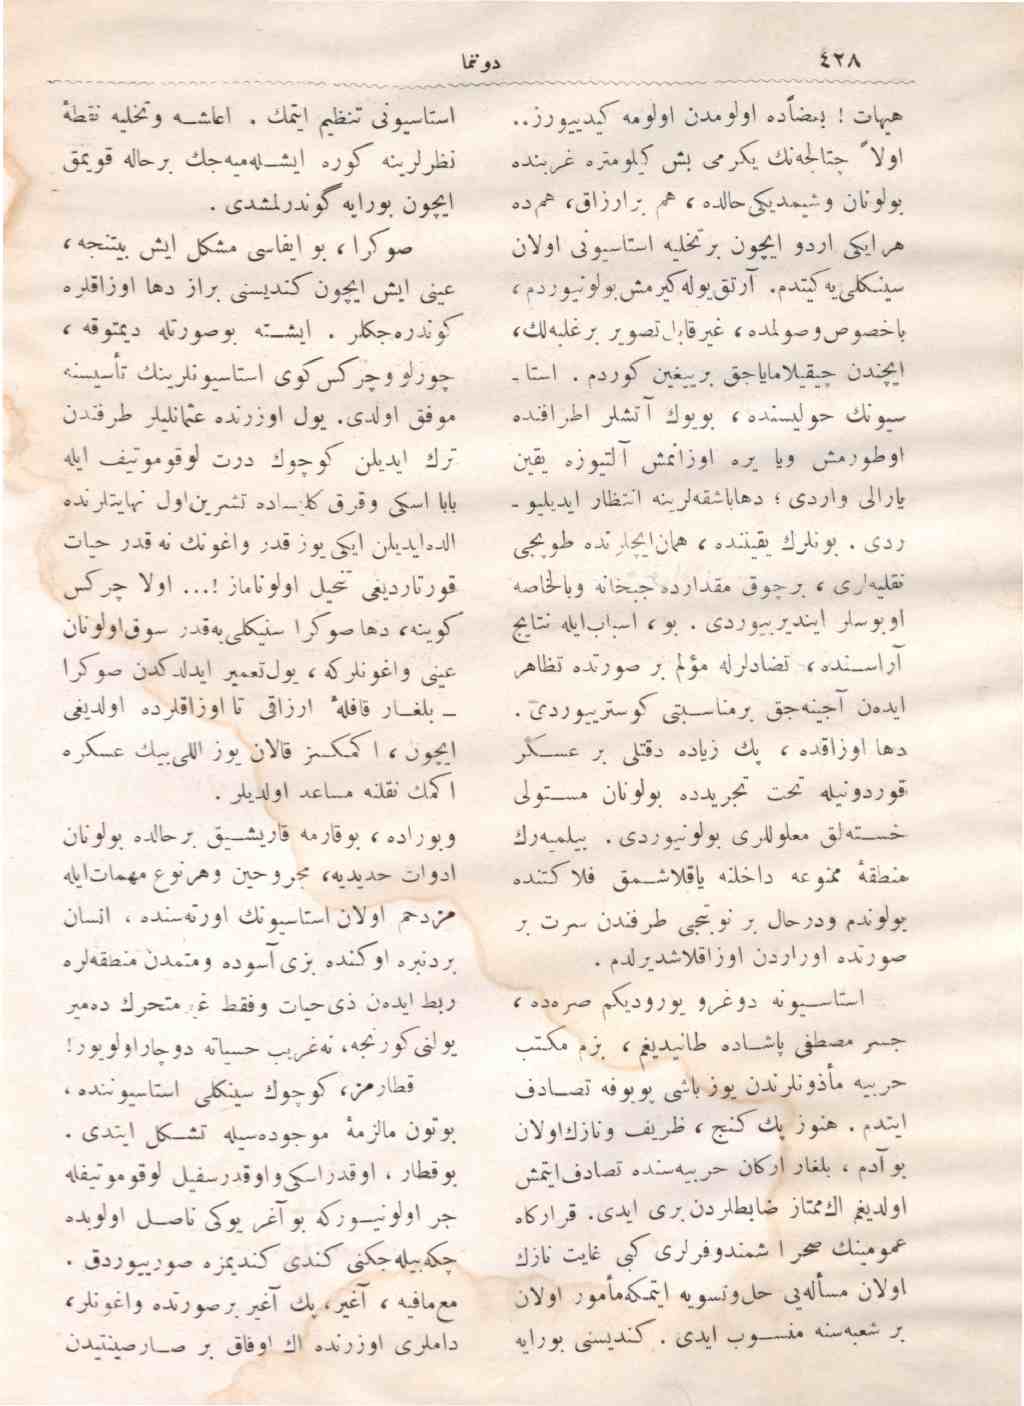 ٤٢٨
دوتما
هیهات ! بعضاًده اولومدن اولومه كیدییورز..
اولاً چتالجه‌نك یكرمی بش كیلومتره غربنده
بولونان وشیمدیكی حالده ، هم برارزاق، هم‌ده
هرایكی اردو ایچون بر تخلیه استاسیونی اولان
سینكلی‌یه كیتدم. آرتق یوله كیرمش بولونیوردم ،
باخصوص وصولمده ، غیرقابل تصویر برغلبه‌لك،
ایچندن چیقیلامایاجق برییغین كوردم . استا ـ
سیونك حولیسنده ، بویوك آتشلر اطرافنده
اوطورمش ویا یره اوزانمش آلتیوزه یقین
یارالی واردی ؛ دهاباشقه‌لرینه انتظار ایدیلیو ـ
ردی . بونلرك یقیننده ، همان ایچلرنده طوپجی
نقلیه‌لری ، برچوق مقدارده جبخانه وبالخاصه
اوبوسلر ایندیرییوردی . بو ، اسباب‌ایله نتایج
آراسـنده ، تضادلرله مؤلم بر صورتده تظاهر
ایده‌ن آجینه‌جق برمناسـبتی كوسترییوردی .
دها اوزاقده ، پك زیاده دقتلی بر عسـكر
قوردونیله تحت تجریدده بولونان مسـتولی
خسـته‌لق معلوللری بولونیوردی . بیلمیه‌رك
منطقهٔ ممنوعه داخلنه یاقلاشـمق فلاكتنده
بولوندم ودرحال بر نوبتجی طرفندن سرت بر
صورتده اورادن اوزاقلاشدیرلدم .
استاسـیونه دوغرو یورودیكم صره‌ده ،
جسر مصطفی پاشـاده طانیدیغم ، بزم مكتب
حربیه مأذونلرندن یوزباشی پوپوفه تصـادف
ایتدم . هنوز پك كنج ، ظریف ونازك‌اولان
بو آدم ، بلغار اركان حربیه‌سنده تصادف‌ایتمش
اولدیغم اك‌ممتاز ضابطلردن بری ایدی. قراركاه
عمومینك صحرا شمندوفرلری كبی غایت نازك
اولان مسأله‌یی حل‌وتسویه ایتمكه‌مأمور اولان
بر شعبه‌سنه منسـوب ایدی . كندیسنی بورایه
استاسیونی تنظیم ایتمك . اعاشـه وتخلیه نقطهٔ
نظرلرینه كوره ایشـله‌میه‌جك برحاله قویمق
ایچون بورایه گوندرلمشدی .
صوكرا ، بو ایفاسی مشكل ایش بیتنجه ،
عینی ایش ایچون كندیسنی براز دها اوزاقلره
كوندره‌جكلر . ایشـته بوصورتله دیمتوقه ،
چورلو وچركس‌كوی استاسیونلرینك تأسیسنه
موفق اولدی. یول اوزرنده عثمانلیلر طرفندن
ترك ایدیلن كوچوك درت لوقوموتیف ایله
بابا اسكی وقرق كلیساده تشرین‌اول نهایتلرنده
الده‌ایدیلن ایكی یوز قدر واغونك نه قدر حیات
قورتاردیغی تخیل اولوناماز !... اولا چركس
كوینه، دها صوكرا سنیكلی‌یه‌قدر سوق‌اولونان
عینی واغونلركه ، یول‌تعمیر ایدلدكدن صوكرا
ـ بلغـار قافلهٔ ارزاقی تا اوزاقلرده اولدیغی
ایچون ، اكمكسـز قالان یوز اللی‌بیك عسكره
اكمك نقلنه مساعد اولدیلر .
وبوراده ، بوقارمه قاریشـیق برحالده بولونان
ادوات حدیدیه، مجروحین وهرنوع مهمات‌ایله
مزدحم اولان استاسیونك اورته‌سنده ، انسان
بردنبره اوكنده بزی آسوده ومتمدن منطقه‌لره
ربط ایده‌ن ذی‌حیات وفقط غیر متحرك ده‌میر
یولنی‌كورنجه، نه‌غریب حسیاته دوچاراولویور!
قطارمز، كوچوك سینكلی استاسیوننده ،
بوتون مالزمهٔ موجوده‌سیله تشـكل ایتدی .
بوقطار ، اوقدراسكی‌و اوقدرسفیل لوقوموتیفله
جر اولونیـوركه بو آغر یوكی ناصـل اولوبده
چكه‌بیله‌جكنی كندی كندیمزه صورییوردق .
مع‌مافیه ، آغیر، پك آغیر برصورتده واغونلر،
داملری اوزرنده اك اوفاق بر صـارصینتیدن